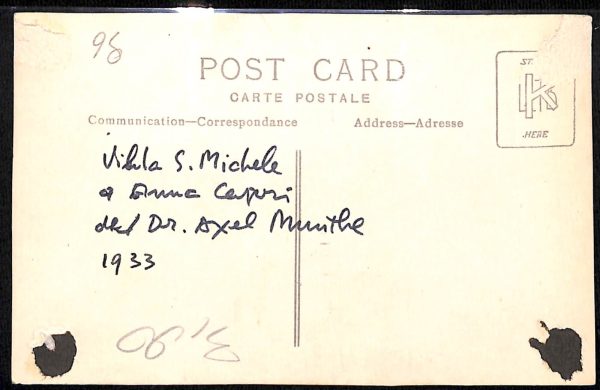 98
POST CARD
CARTE POSTALE
Communication—Correspondance Address—Adresse
ST.
HERE
S. Michele
Dr. Axel Munthe
1933